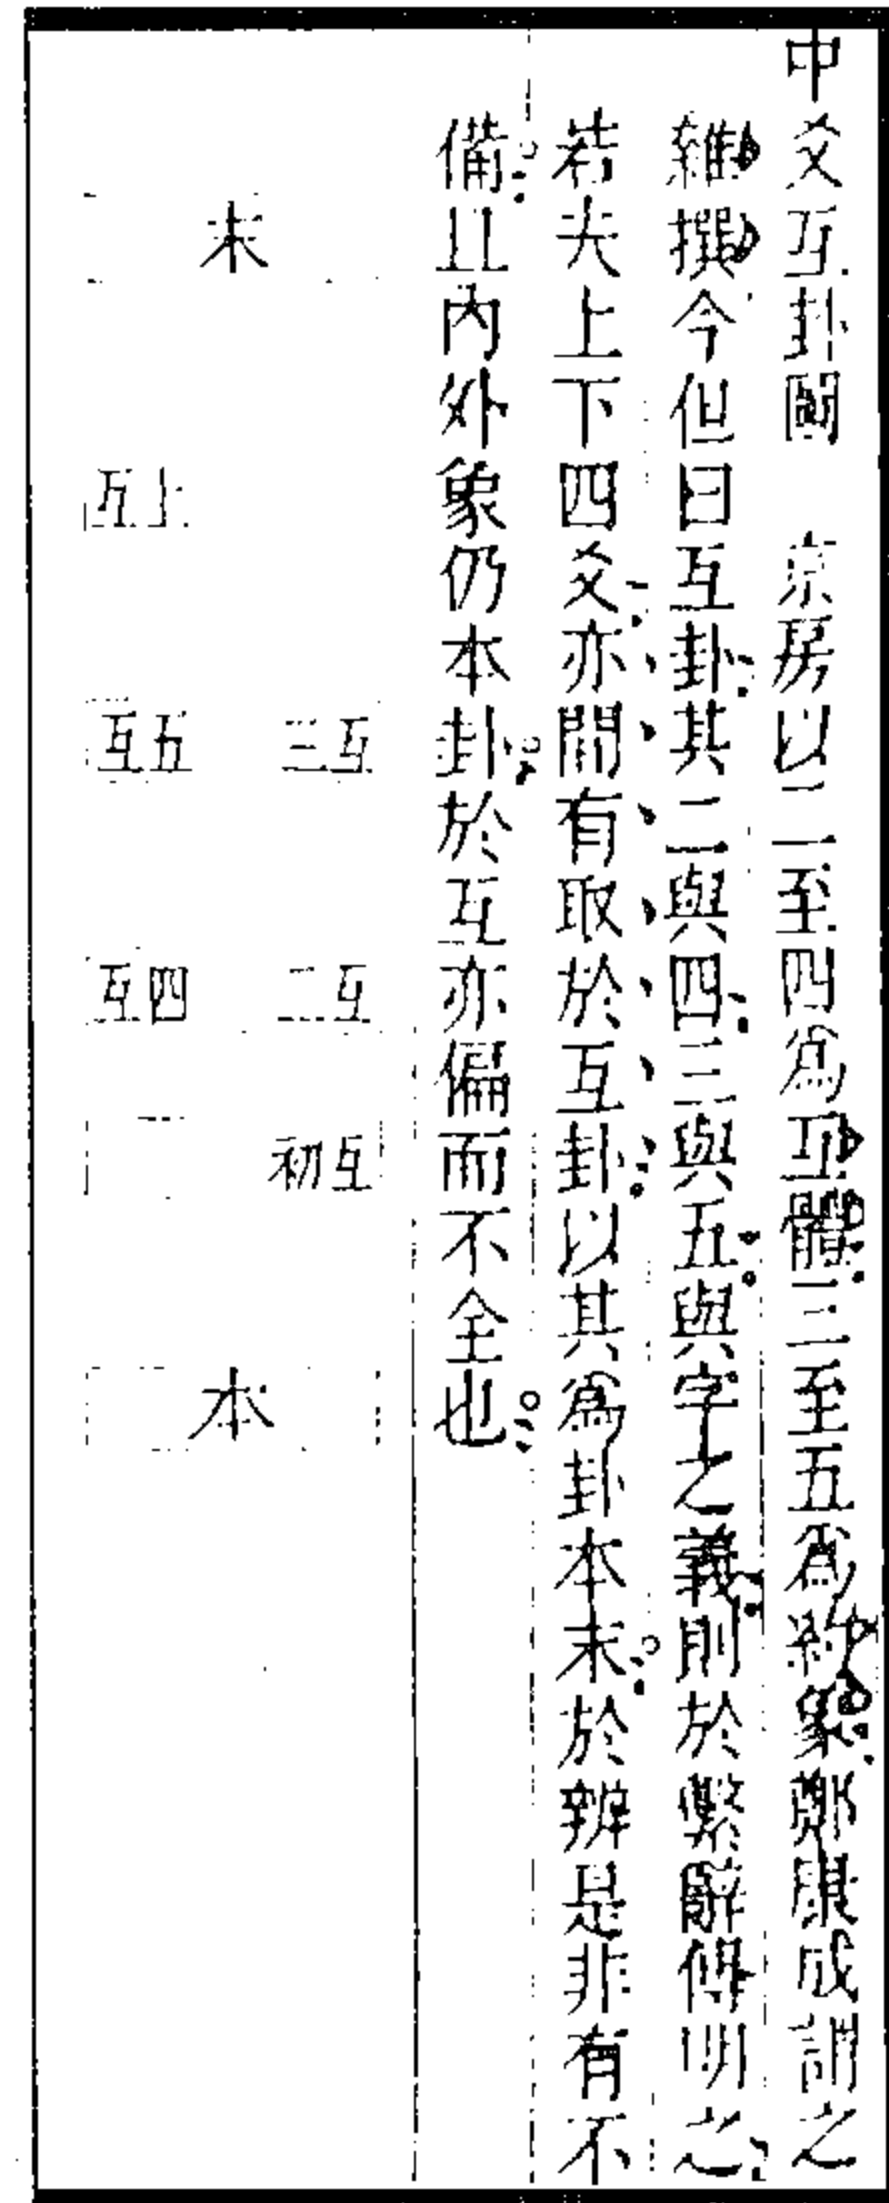 中爻互卦圖　京房以二至四為互體三至五為約象鄭康成謂之
雜撰今但曰互卦其二與四三與五與字之義則於繫辭傳明之
若夫上下四爻亦間有取於互卦以其為卦本末於辨是非有不
備且內外象仍本卦於互亦偏而不全也
末
本
互三
互二
互初
上互
五互
四互